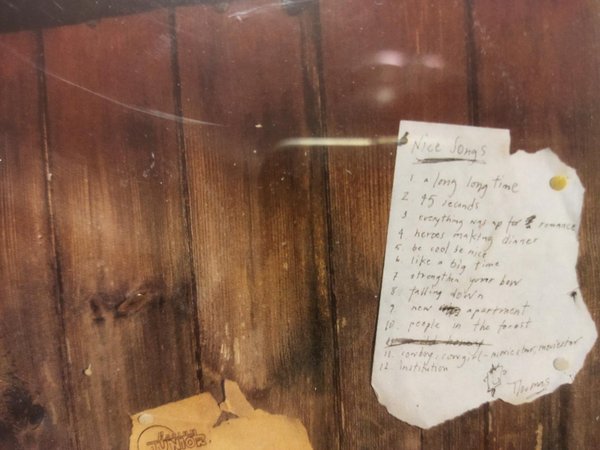 Nice Songs
1. a long long time
2. 45 seconds
3 everything was up for romance
4. heroes making dinner
5. be cool be nice
6. like a big time
7 strengthen your bow
8 falling down
9 new apartment
10. people in the forest
11. cowboy, cowgirl -
12 Institution
Thomas
JUNIOR